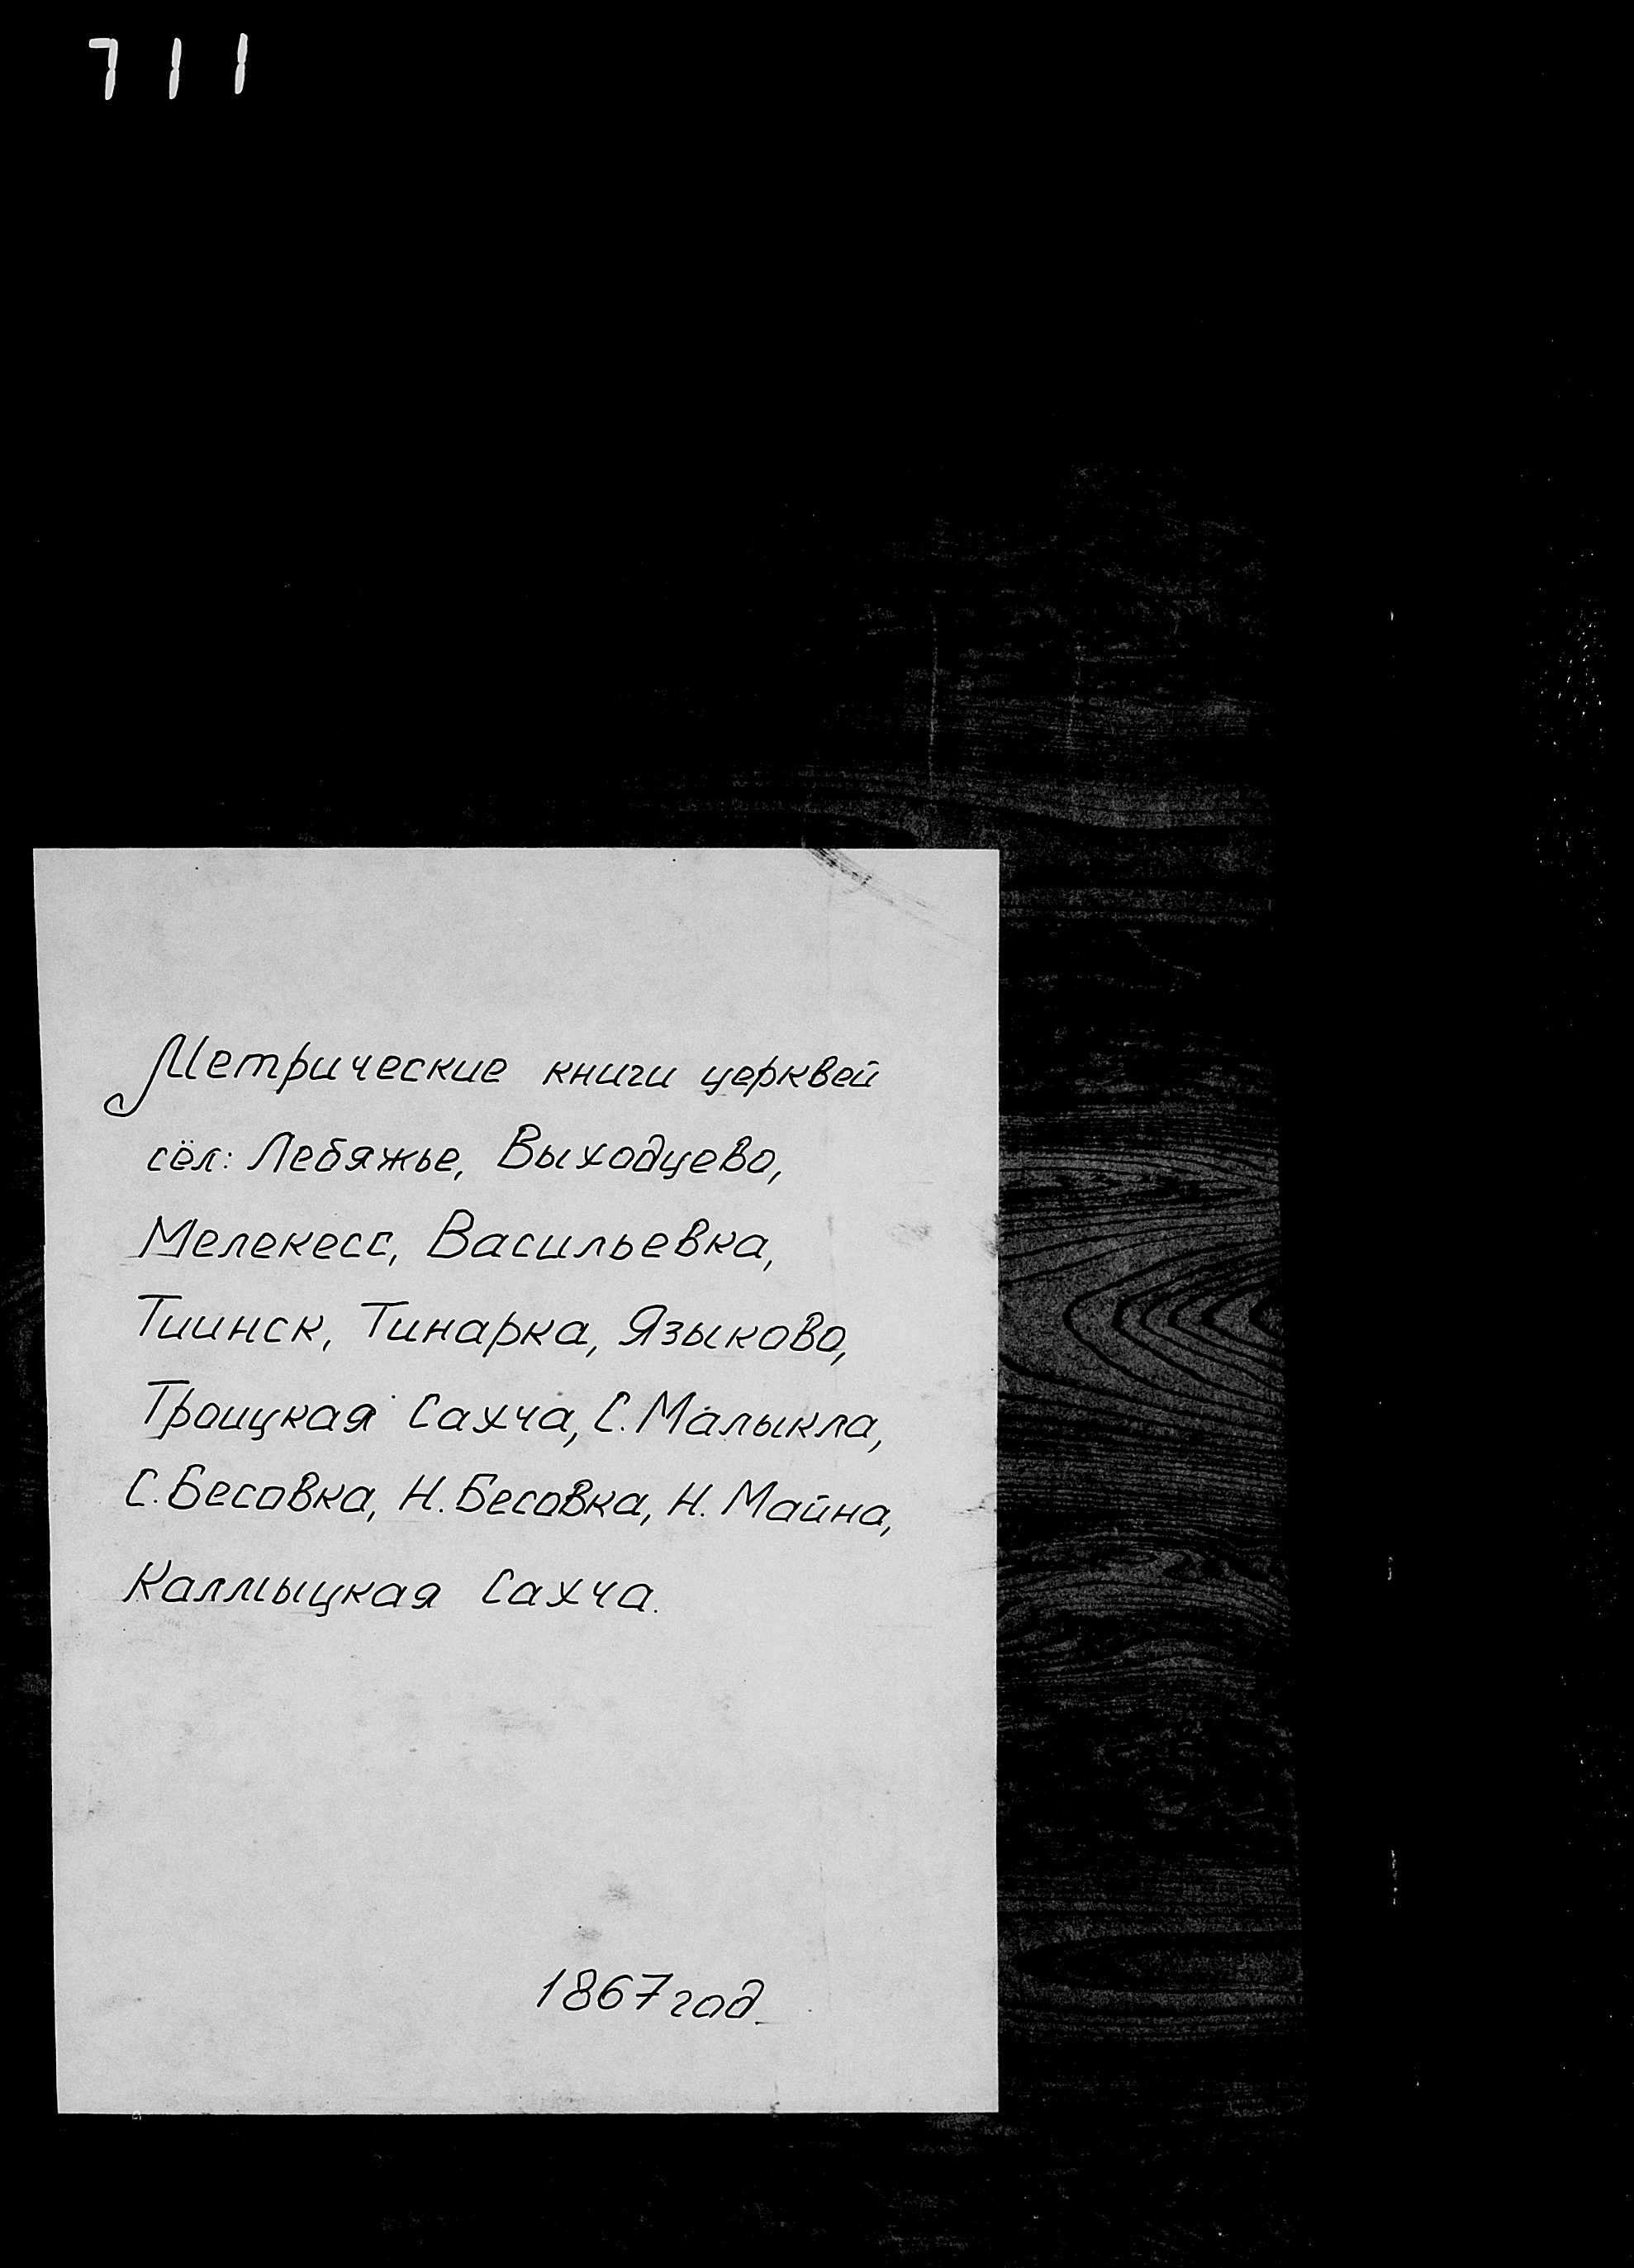 711
Метрические книги церквей
сёл: Лебяжье, Выходцево,
Мелекесс, Васильевка,
Тиинск, Тинарка, Языково,
Троицкая Сахча, С. Малыкла,
С. Бесовка, Н. Бесовка, Н. Майна,
Калмыцкая Сахча.
1867 год.